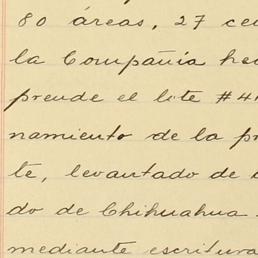 80 áreas, 27 ce
la Compañía ha
prende el lote #4
namiento de la p
te, levantado de
do de Chihuahua
mediante escritura